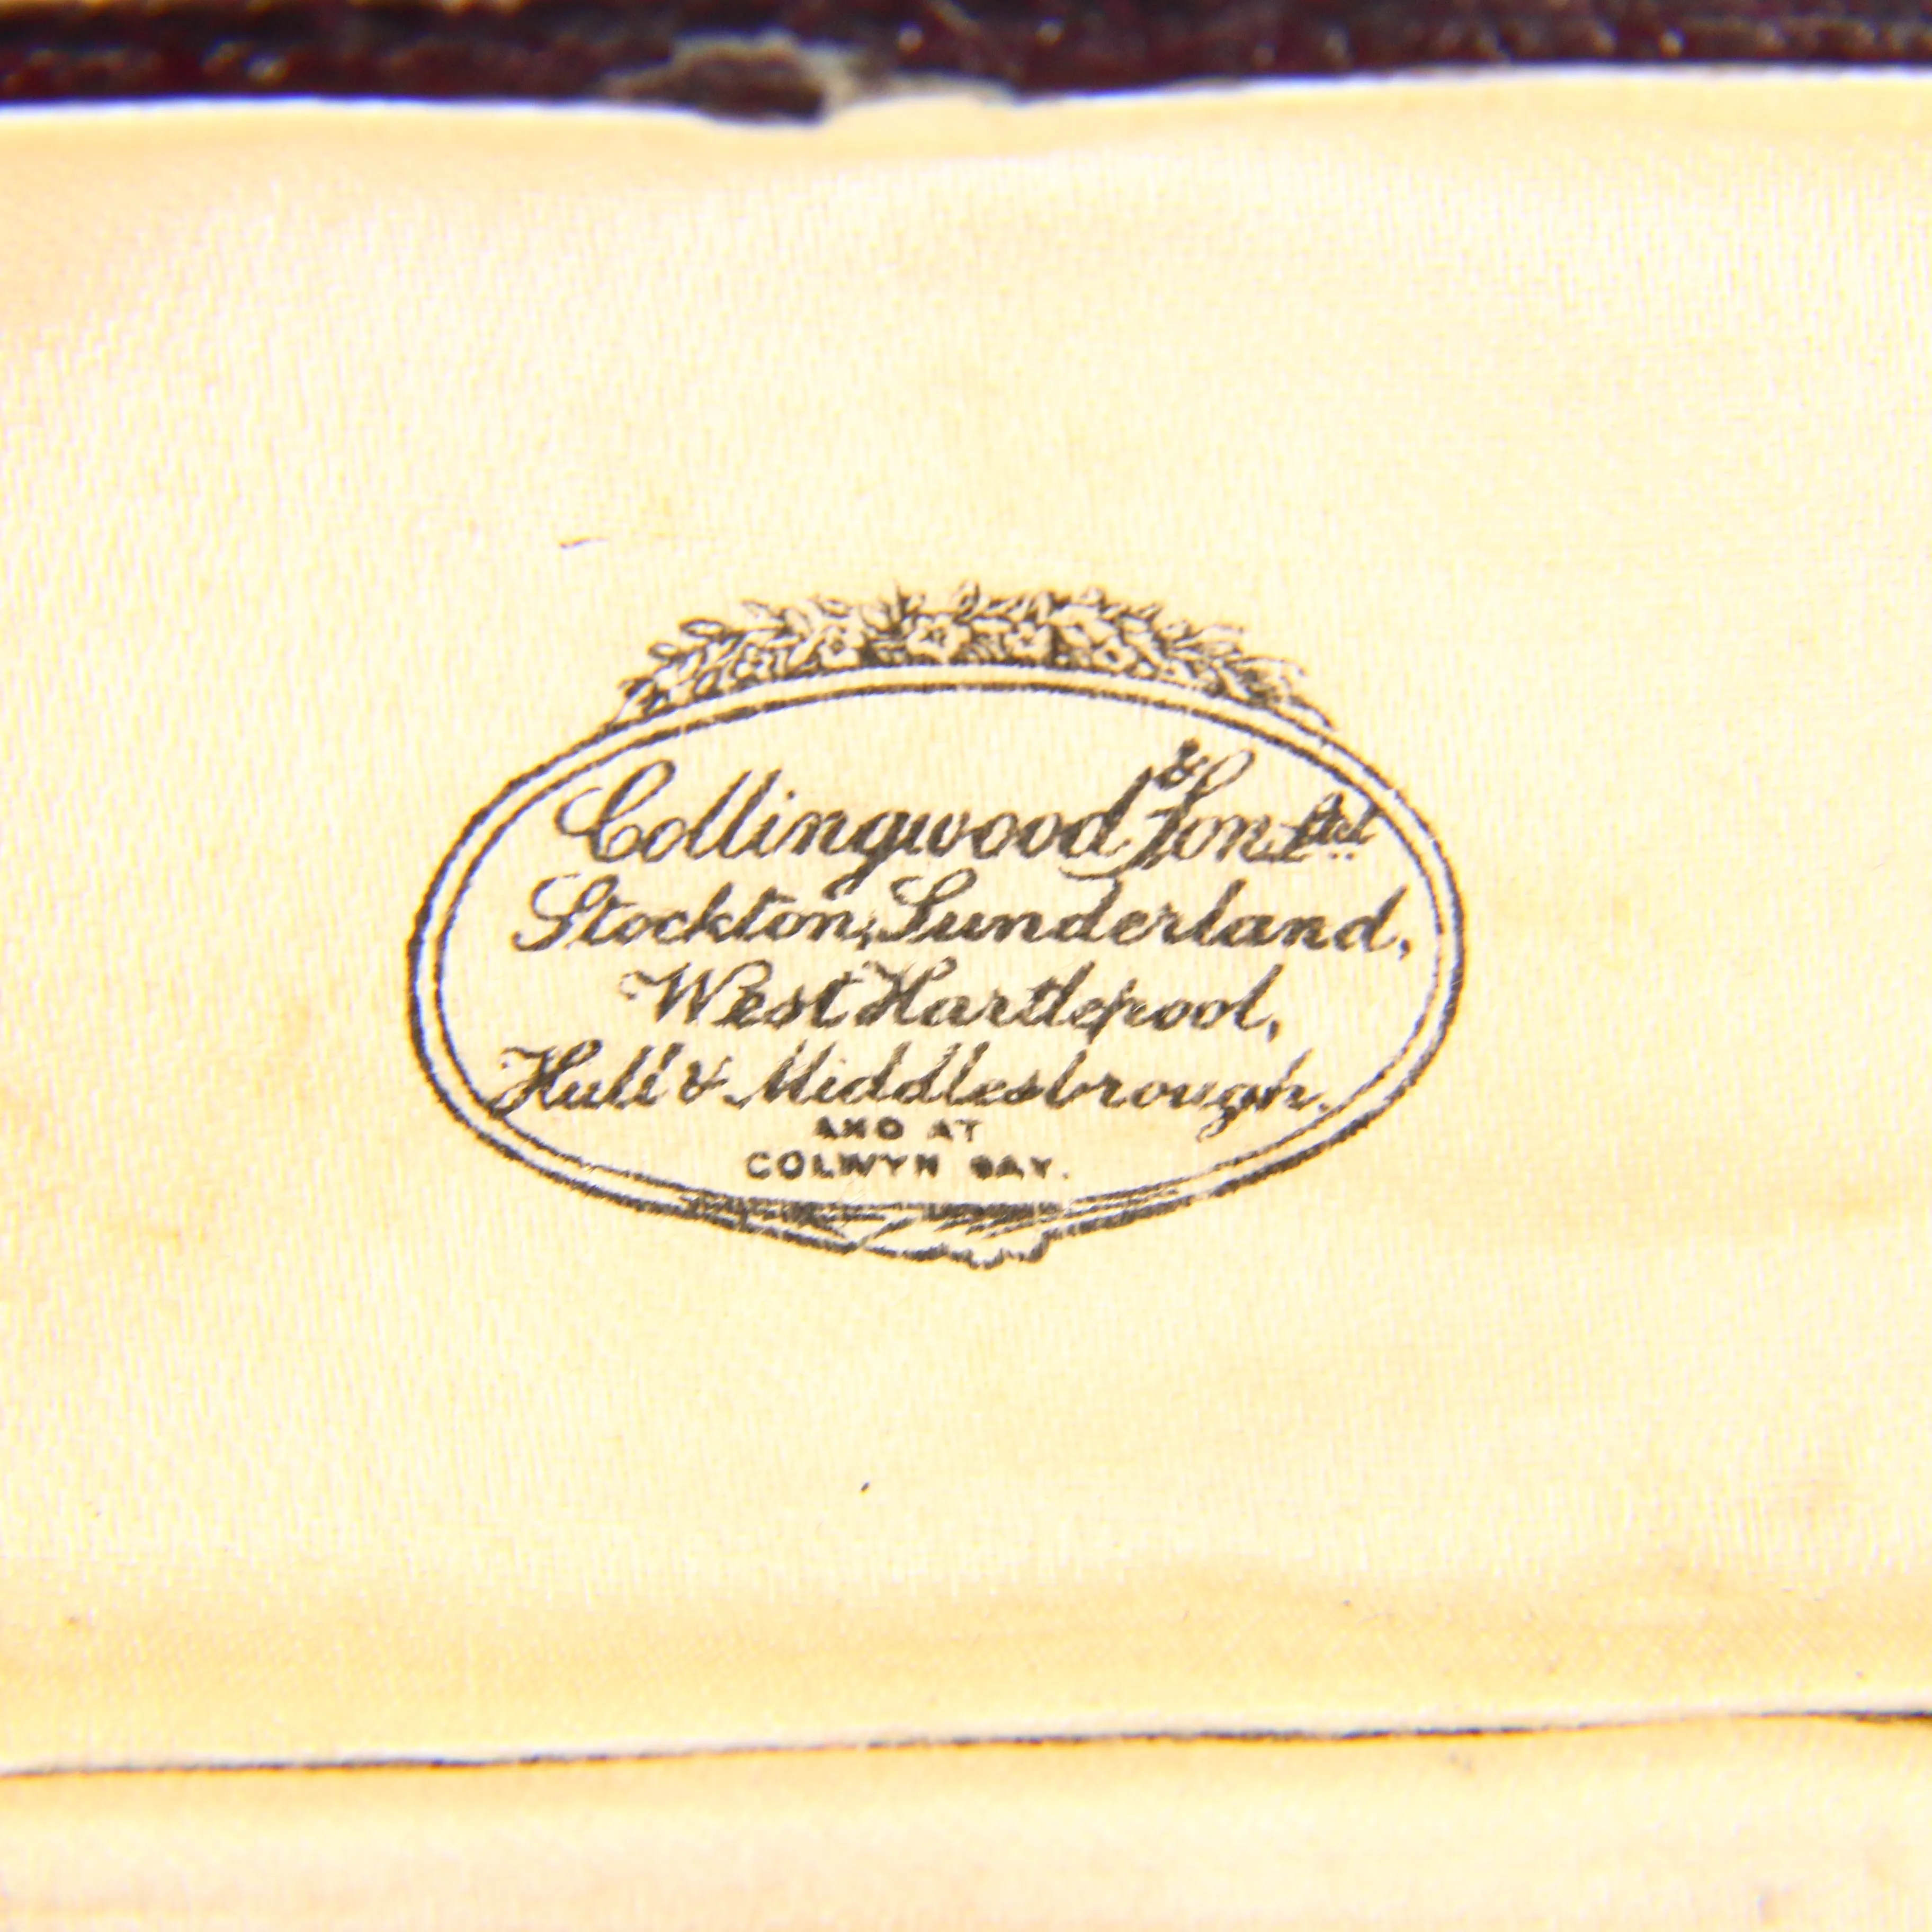 Collingwood & Son Ltd
Stockton, Sunderland,
West Hartlepool,
Hull & Middlesbrough.
AND AT
COLWYN BAY.